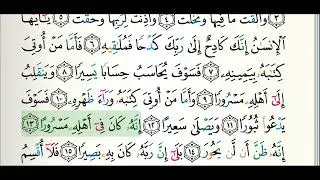 وَأَلْقَتْ مَا فِيهَا وَتَخَلَّتْ ٤ وَأَذِنَتْ لِرَبِّهَا وَحُقَّتْ ٥ يَٰٓأَيُّهَا
ٱلْإِنسَٰنُ إِنَّكَ كَادِحٌ إِلَىٰ رَبِّكَ كَدْحًا فَمُلَٰقِيهِ ٦ فَأَمَّا مَنْ أُوتِىَ
كِتَٰبَهُۥ بِيَمِينِهِۦ ٧ فَسَوْفَ يُحَاسَبُ حِسَابًا يَسِيرًا ٨ وَيَنقَلِبُ
إِلَىٰٓ أَهْلِهِۦ مَسْرُورًا ٩ وَأَمَّا مَنْ أُوتِىَ كِتَٰبَهُۥ وَرَآءَ ظَهْرِهِۦ ١٠ فَسَوْفَ
يَدْعُوا۟ ثُبُورًا ١١ وَيَصْلَىٰ سَعِيرًا ١٢ إِنَّهُۥ كَانَ فِىٓ أَهْلِهِۦ مَسْرُورًا ١٣
إِنَّهُۥ ظَنَّ أَن لَّن يَحُورَ ١٤ بَلَىٰٓ إِنَّ رَبَّهُۥ كَانَ بِهِۦ بَصِيرًا ١٥ فَلَآ أُقْسِمُ